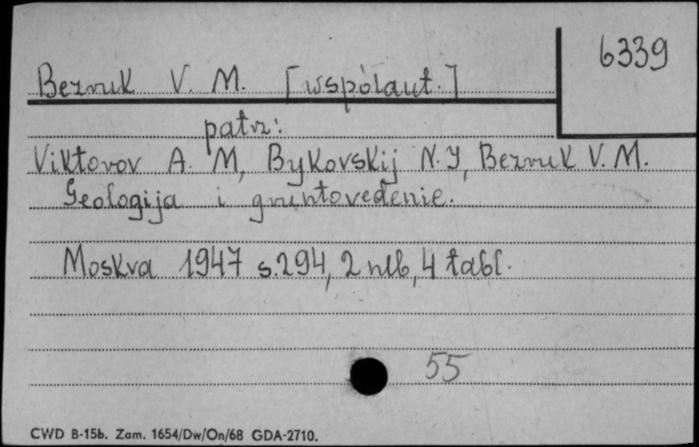 6339
Bezruk V. M. [współaut.]
patrz:
Viktorov A. M, Bykovskij N. J, Bezruk V. M.
Geologija i gruntovedenie.
Moskva 1947 s. 294, 2 nlb, 4 tabl.
55
CWD B-15b. Zam. 1654/Dw/On/68 GDA-2710.